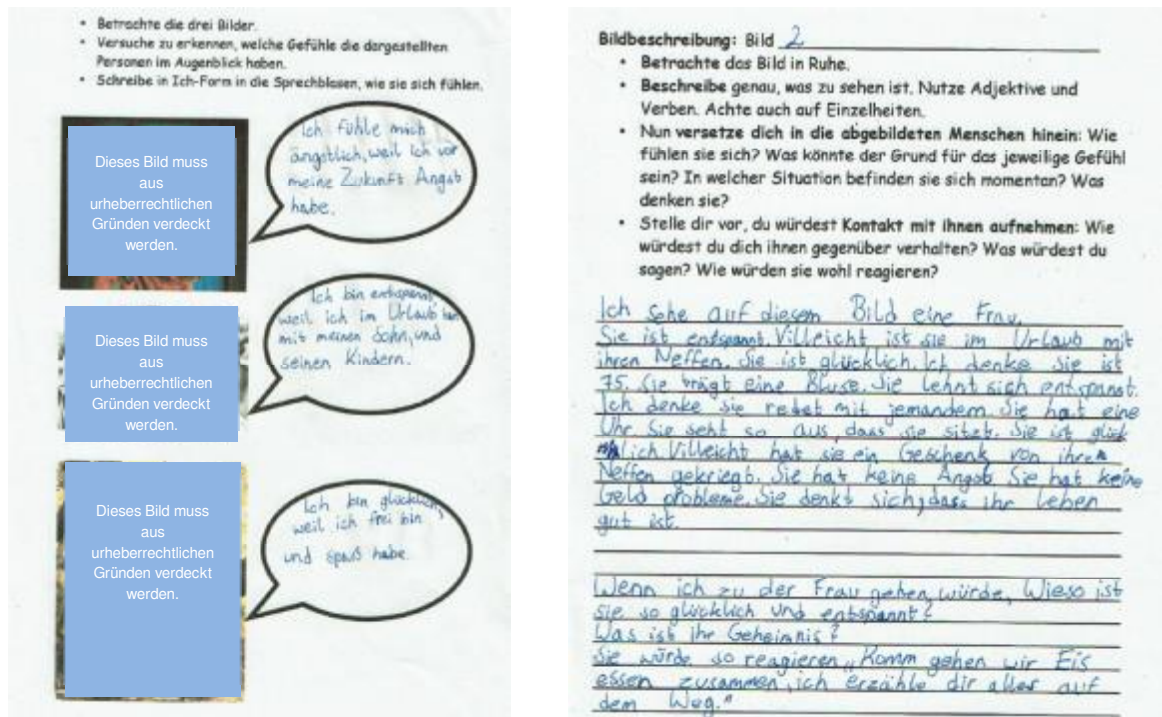 • Betrachte die drei Bilder.
• Versuche zu erkennen, welche Gefühle die dargestellten
Personen im Augenblick haben.
• Schreibe in Ich-Form in die Sprechblasen, wie sie sich fühlen.
Dieses Bild muss
aus
urheberrechtlichen
Gründen verdeckt
werden.
Ich fühle mich
ängstlich, weil ich vor
meine Zukunft Angst
habe.
Dieses Bild muss
aus
urheberrechtlichen
Gründen verdeckt
werden.
Ich bin entspannt,
weil ich im Urlaub bin
mit meinen Sohn, und
seinen Kindern.
Dieses Bild muss
aus
urheberrechtlichen
Gründen verdeckt
werden.
Ich bin glücklich,
weil ich frei bin
und spaß habe.
Bildbeschreibung: Bild 2
• Betrachte das Bild in Ruhe.
• Beschreibe genau, was zu sehen ist. Nutze Adjektive und
Verben. Achte auch auf Einzelheiten.
• Nun versetze dich in die abgebildeten Menschen hinein: Wie
fühlen sie sich? Was könnte der Grund für das jeweilige Gefühl
sein? In welcher Situation befinden sie sich momentan? Was
denken sie?
• Stelle dir vor, du würdest Kontakt mit ihnen aufnehmen: Wie
würdest du dich ihnen gegenüber verhalten? Was würdest du
sagen? Wie würden sie wohl reagieren?
Ich sehe auf diesem Bild eine Frau.
Sie ist entspannt. Villeicht ist sie im Urlaub mit
ihren Neffen. Sie ist glücklich. Ich denke sie ist
75. Sie trägt eine Bluse. Sie lehnt sich entspannt.
Ich denke sie redet mit jemandem. Sie hat eine
Uhr. Sie seht so aus, dass sie sitzt. Sie ist glück
lich. Villeicht hat sie ein Geschenk von ihren
Neffen gekriegt. Sie hat keine Angst. Sie hat keine
Geld probleme. Sie denkt sich, dass ihr Leben
gut ist.
Wenn ich zu der Frau gehen würde, Wieso ist
sie so glücklich und entspannt?
Was ist ihr Geheimnis?
Sie würde so reagieren „Komm gehen wir Eis
essen zusammen, ich erzähle dir alles auf
dem Weg."